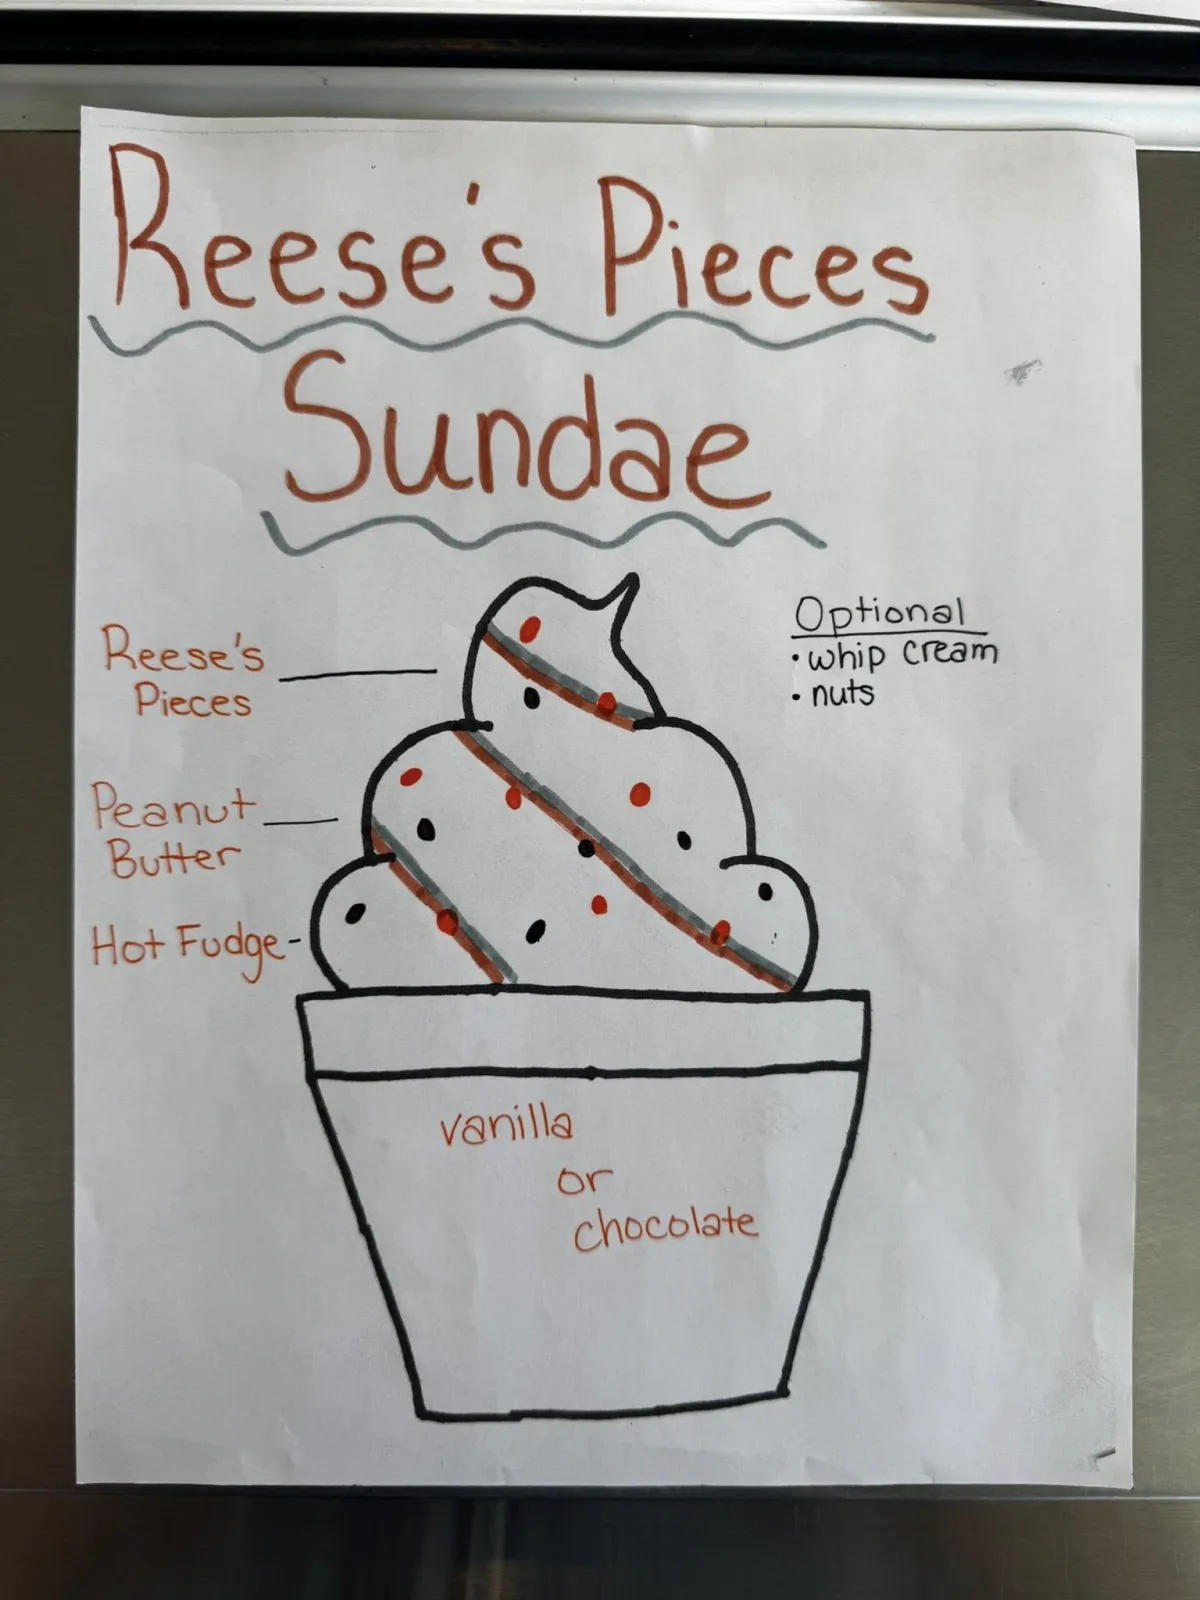 Reese's Pieces
Sundae
Optional
• whip cream
• nuts
Reese's
Pieces
Peanut
Butter
Hot Fudge
vanilla
or
chocolate